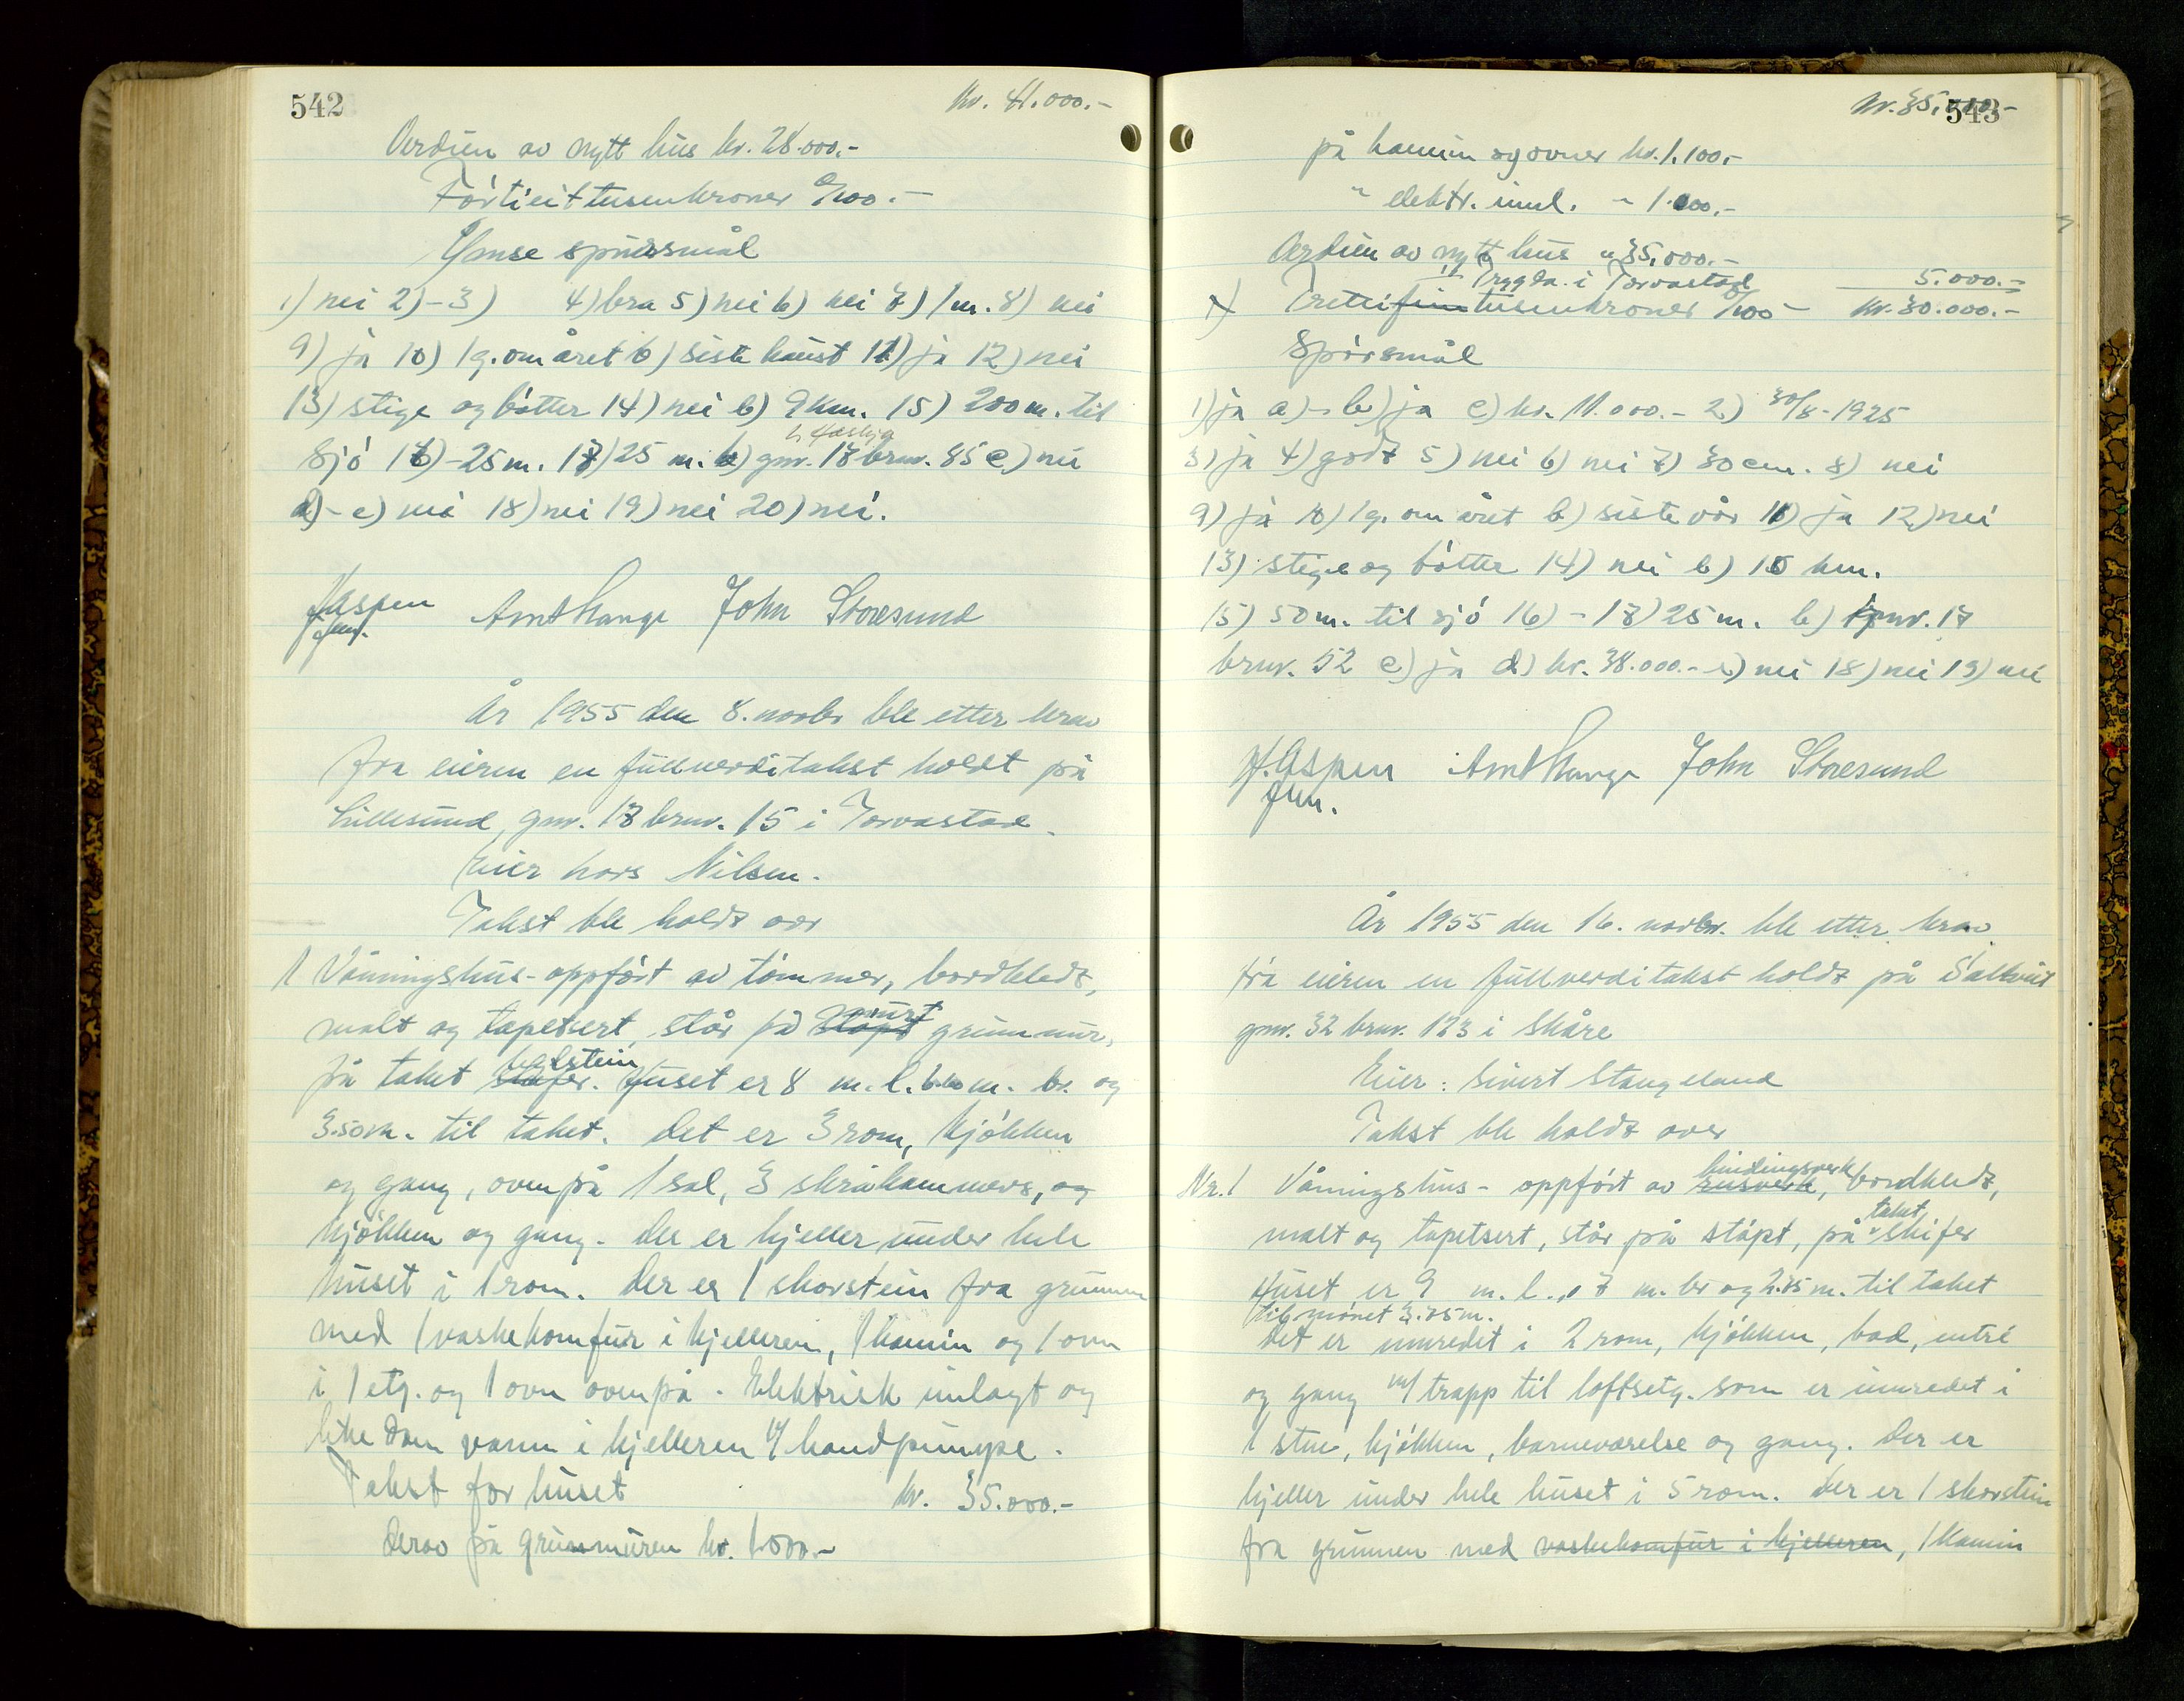 542
kr. 41.000.-
Verdien av nytt hus kr. 28.000.-
Förtieittusenkroner 0/100.-
Ymse spursmål
1) nei 2) - 3) 4) bra 5) nei 6) nei 7) 1 m. 8) nei
9) ja 10) 1 g. om året b) siste haust 11) ja 12) nei
13) stige og bötter 14) nei b) 9 km. 15) 200 m. til
Sjö 16) - 25 m. 17) 25 m. b) gnr. 18 brnr. 85 c) nei
d) - e) nei 18) nei 19) nei 20) nei.
H. Aspen jun. Arnt Hauge John Storesund
År 1955 den 8. novbr ble etter krav
fra eieren en fullverditakst holdt på
Lillesund, gnr. 18 brnr. 15 i Torvastad.
Eier Lars Nilsen.
Takst ble holdt over
1 Våningshus - oppfört av tömmer, bordkledt,
malt og tapetsert, står på stöpt murt grunnmur,
på taket skifer teglstein. Huset er 8 m. l. 6.60 m. br. og
3.50 m. til taket. Det er 3 rom, kjökken
og gang, ovenpå 1 sal, 3 skråkammers, og
kjökken og gang. Der er kjeller under hele
huset i 1 rom. Der er 1 skorstein fra grunnen
med 1 vaskekomfur i kjelleren, 1 kamin og 1 ovn
i 1 etg. og 1 ovn ovenpå. Elektrisk innlagt og
like dan vann i kjelleren m/ handpumpe.
Takst for huset kr. 35.000.-
Derav på grunnmuren kr. 1.000.-
543
kr. 35.000.-
på kamin og ovner kr. 1.100.-
" elektr. innl. " 1.000.-
Verdien av nytt hus " 35.000.-
÷ Trygda i Torvastad 5.000.-
Trettifemtusenkroner 0/100 - kr. 30.000.-
Spörsmål
1) ja a) - b) ja c) kr. 11.000.- 2) 30/8 - 1925
3) ja 4) godt 5) nei 6) nei 7) 30 cm. 8) nei
9) ja 10) 1 g. om året b) siste vår 11) ja 12) nei
13) stige og bötter 14) nei b) 10 km.
15) 50 m. til sjö 16) - 17) 25 m. b) gnr. 17
brnr. 52 c) ja d) kr. 38.000.- e) nei 18) nei 19) nei
H. Aspen jun. Arnt Hauge John Storesund
År 1955 den 16. novbr. ble etter krav
fra eieren en fullverditakst holdt på Saltveit
gnr. 32 brnr. 123 i Skåre
Eier: Sivert Stangeland
Takst ble holdt over
Nr. 1 Våningshus - oppfört av reisverk bindingsverk, bordkledt,
malt og tapetsert, står på stöpt, på taket skifer
Huset er 9 m. l., 7 m. br og 2.85 m. til taket
til mönet 3.75 m.
Det er innredet i 2 rom, kjökken, bad, entré
og gang m/ trapp til loftsetg. som er innredet i
1 stue, kjökken, barneværelse og gang. Der er
kjeller under hele huset i 5 rom. Der er 1 skorstein
fra grunnen med vaskekomfur i kjelleren, 1 kamin